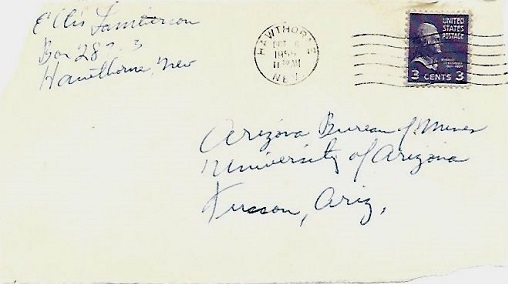 Ellis Lamberson
Box 287-3
Hawthorne, Nev
HAWTHORNE
NEV
UNITED
STATES
POSTAGE
3 CENTS 3
Arizona Bureau of Mines
University of Arizona
Tucson, Ariz.